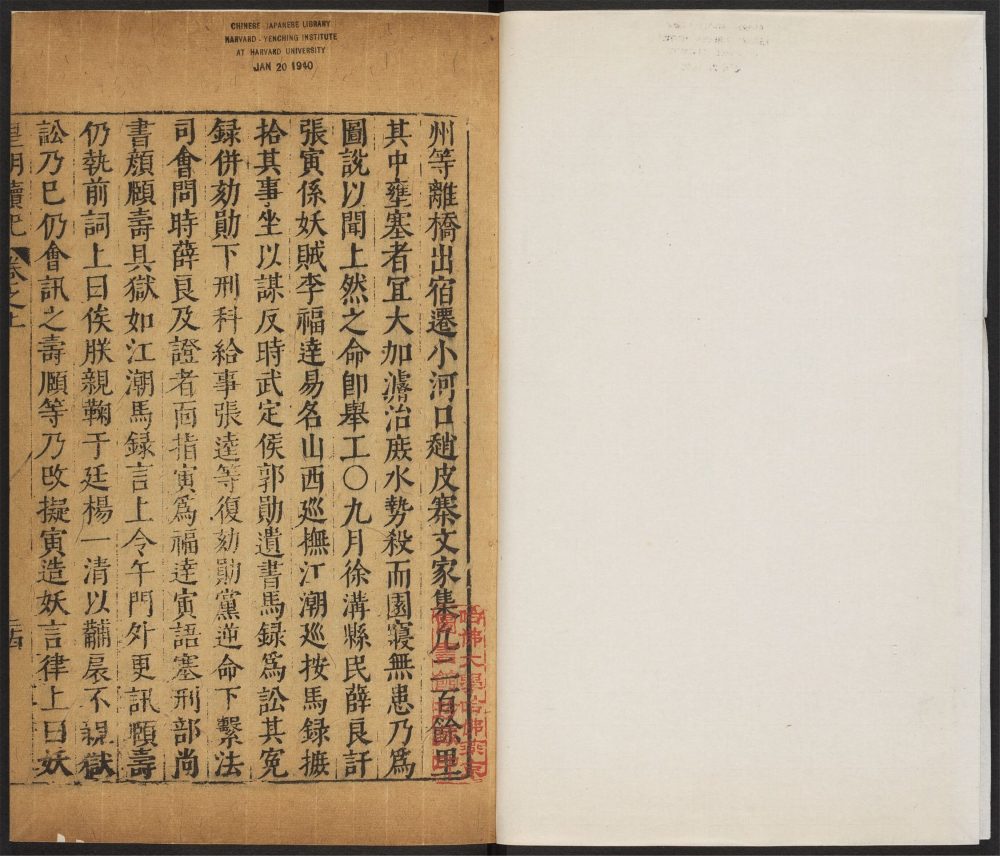 CHINESE JAPANESE LIBRARY
HARVARD-YENCHING INSTITUTE
AT HARVARD UNIVERSITY
JAN 20 1940
州等離橋出宿遷小河口趙皮寨文家集凡二百餘里
其中壅塞者宜大加濬治庶水勢殺而園寢無患乃爲
圖說以聞上然之命卽舉工〇九月徐溝縣民薛良訐
張寅係妖賊李福達易名山西廵撫江潮廵按馬録摭
拾其事坐以謀反時武定侯郭勛遺書馬録爲訟其寃
録併劾勛下刑科給事張逵等復劾勛黨逆命下繫法
司會問時薛良及證者面指寅爲福逹寅語塞刑部尚
書顔頥壽具獄如江潮馬録言上令午門外更訊頥壽
仍執前詞上曰俟朕親鞠于廷楊一清以黼扆不親獄
訟乃已仍會訊之壽頥等乃改擬寅造妖言律上曰妖
皇明 卷之上